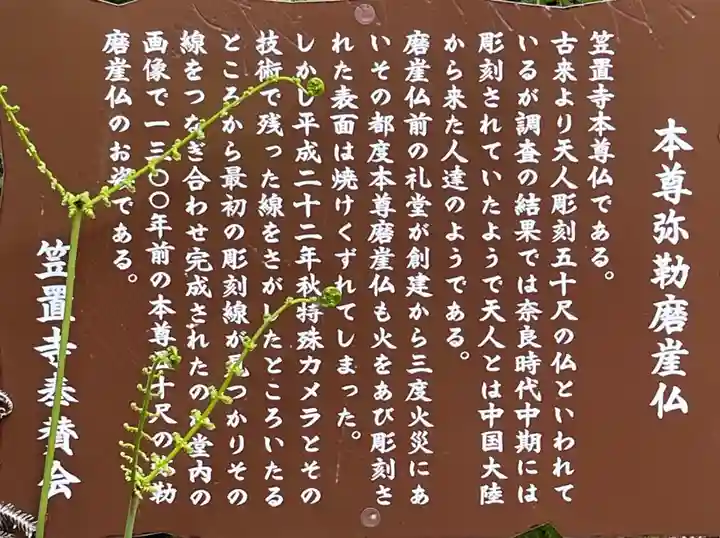 本尊弥勒磨崖仏
笠置寺本尊仏である。
古来より天人彫刻五十尺の仏といわれて
いるが調査の結果では奈良時代中期には
彫刻されていたようで天人とは中国大陸
から来た人達のようである。
磨崖仏前の礼堂が創建から三度火災にあ
いその都度本尊磨崖仏も火をあび彫刻さ
れた表面は焼けくずれてしまった。
しかし平成二十二年秋特殊カメラとその
技術で残った線をさがしたところいたる
ところから最初の彫刻線が見つかりその
線をつなぎ合わせ完成されたの 堂内の
画像で一三〇〇年前の本尊五十尺の弥勒
磨崖仏のお姿である。
笠置寺奉賛会